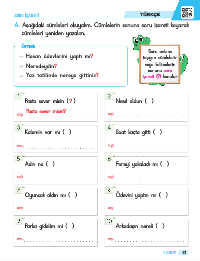 TÜRKÇE
A. Aşağıdaki cümleleri okuyalım. Cümlelerin sonuna soru işareti koyarak cümleleri yeniden yazalım.
Örnek
– Hasan ödevlerini yaptı mı?
– Neredeydin?
– Yaz tatilinde nereye gittiniz?
Soru anlamı taşıyan cümlelerin veya sözcüklerin sonuna soru işareti (?) konulur.
1 Pasta sever misin (?)
Pasta sever misin?
2 Nasıl oldun ( )
3 Kalemin var mı ( )
4 Saat kaçta gitti ( )
5 Adın ne ( )
6 Fareyi yakaladı mı ( )
7 Oyuncak aldın mı ( )
8 Ödevini yaptın mı ( )
9 Parka gidelim mi ( )
10 Arkadaşın nereli ( )